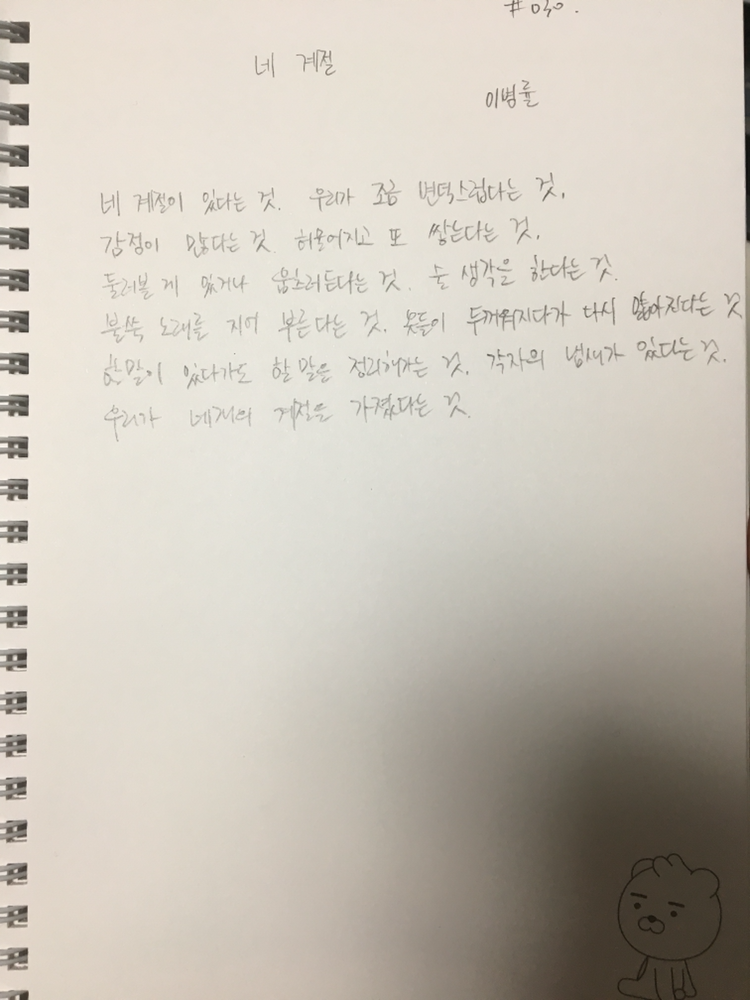 #030.
네 계절
이병률
네 계절이 있다는 것. 우리가 조금 변덕스럽다는 것.
감정이 많다는 것. 허물어지고 또 쌓는다는 것.
둘러볼 게 있거나 움츠러든다는 것. 술 생각을 한다는 것.
불쑥 노래를 지어 부른다는 것. 옷들이 두꺼워지다가 다시 얇아진다는 것
할말이 있다가도 할 말은 정리해가는 것. 각자의 냄새가 있다는 것.
우리가 네개의 계절을 가졌다는 것.